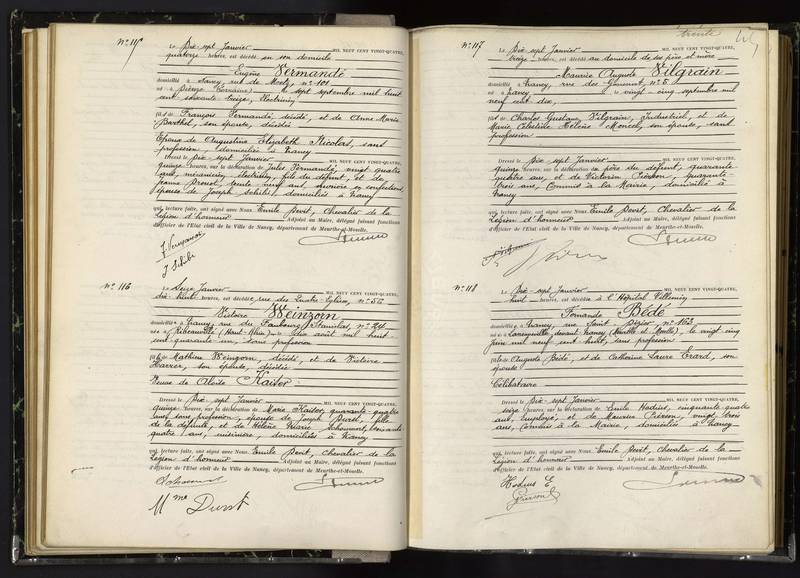 N° 115
Le Dix-sept Janvier MIL NEUF CENT VINGT-QUATRE,
quatorze heures, est décédé en son domicile
Eugène Vermandé
domicilié à Nancy, rue de Metz, n° 101
né à Dieuze (Lorraine) le sept septembre mil huit
cent soixante treize, électricien
fils de François Vermandé, décédé, et de Anne Marie
Barthel, son épouse, décédée
Epoux de Augustine Elizabeth Nicolas, sans
profession, domiciliée à Nancy
Dressé le Dix-sept Janvier MIL NEUF CENT VINGT-QUATRE,
quinze heures, sur la déclaration de Jules Vermandé, vingt quatre
ans, mécanicien, électricien, fils du défunt, et de
Jeanne trente neuf ans, ouvrière en confections,
épouse de Joseph Schibi, domiciliés à Nancy
qui, lecture faite, ont signé avec Nous, Emile Devit, Chevalier de la
Légion d'honneur Adjoint au Maire, délégué faisant fonctions
d'officier de l'Etat civil de la Ville de Nancy, département de Meurthe-et-Moselle.
J Vermandé
J Schibi
N° 116
Le Seize Janvier MIL NEUF CENT VINGT-QUATRE,
dix-huit heures, est décédée rue des Quatre Eglises, n° 56
Victoire Weinzorn
domiciliée à Nancy, rue du Faubourg Stanislas, n° 24
née à Ribeauvillé (Haut-Rhin) le dix août mil huit
cent quarante un, sans profession
fille de Mathieu Weinzorn, décédé, et de Victoire
Harrer, son épouse, décédée
Veuve de Aloïse Kaiser
Dressé le Dix-sept Janvier MIL NEUF CENT VINGT-QUATRE,
quinze heures, sur la déclaration de Marie Kaiser, quarante-quatre
ans, sans profession, épouse de Joseph Durst, fille
de la défunte, et de Hélène Marie Schoumert, soixante
quatre ans, domiciliées à Nancy
qui, lecture faite, ont signé avec Nous, Emile Devit, Chevalier de la
Légion d'honneur Adjoint au Maire, délégué faisant fonctions
d'officier de l'Etat civil de la Ville de Nancy, département de Meurthe-et-Moselle.
Mme Durst
trente
N° 117
Le Dix-sept Janvier MIL NEUF CENT VINGT-QUATRE,
treize heures, est décédé au domicile de ses père et mère
Maurice Auguste Vilgrain
domicilié à Nancy, rue des Glacis, n° 5
né à Nancy le vingt cinq septembre mil
neuf cent dix,
fils de Charles Gustave Vilgrain, Industriel, et de
Marie Célestine Hélène Moncel, son épouse, sans
profession
Dressé le Dix-sept Janvier MIL NEUF CENT VINGT-QUATRE,
quinze heures, sur la déclaration du père du défunt, quarante-
quatre ans, et de Victorin Pierson, quarante-
trois ans, Commis à la Mairie, domiciliés à
Nancy
qui, lecture faite, ont signé avec Nous, Emile Devit, Chevalier de la
Légion d'honneur Adjoint au Maire, délégué faisant fonctions
d'officier de l'Etat civil de la Ville de Nancy, département de Meurthe-et-Moselle.
N° 118
Le Dix-sept Janvier MIL NEUF CENT VINGT-QUATRE,
huit heures, est décédée à l'Hôpital Villemin
Fernande Bédé
domiciliée à Nancy, rue Saint-Dizier, n° 163
née à Laneuveville devant Nancy (Meurthe et Moselle) le vingt cinq
juin mil neuf cent huit, sans profession
fille de Auguste Bédé, et de Catherine Laure Erard, son
épouse
Célibataire
Dressé le Dix-sept Janvier MIL NEUF CENT VINGT-QUATRE,
seize heures, sur la déclaration de Emile Hodius, cinquante-quatre
ans, Employé, et de Maurice Pierson, vingt trois
ans, Commis à la Mairie, domiciliés à Nancy
qui, lecture faite, ont signé avec Nous, Emile Devit, Chevalier de la
Légion d'honneur Adjoint au Maire, délégué faisant fonctions
d'officier de l'Etat civil de la Ville de Nancy, département de Meurthe-et-Moselle.
Hodius E
Pierson